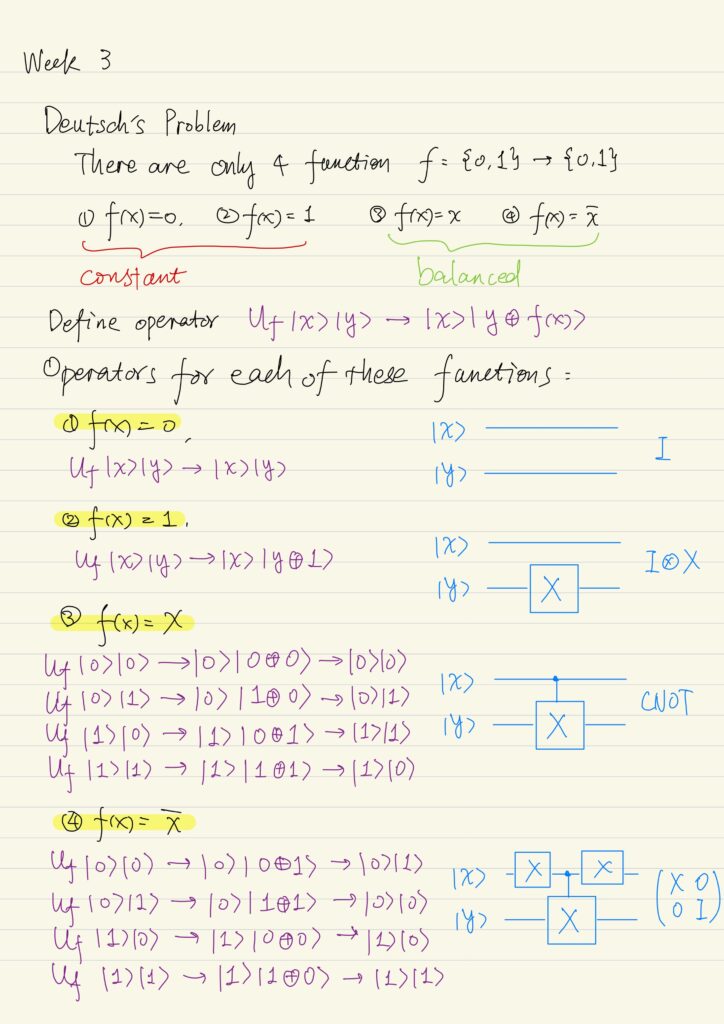 Week 3
Deutsch's Problem
There are only 4 function f = {0,1} → {0,1}
① f(x)=0. ② f(x)=1 ③ f(x)=x ④ f(x)=x̄
constant balanced
Define operator Uf |x>|y> → |x>|y ⊕ f(x)>
Operators for each of these functions =
① f(x)=0,
|x>
Uf |x>|y> → |x>|y>
|y>
I
② f(x)=1,
Uf |x>|y> → |x>|y⊕1>
|x>
|y> X
I⊗X
③ f(x)=x
Uf |0>|0> → |0>|0⊕0> → |0>|0>
Uf |0>|1> → |0>|1⊕0> → |0>|1>
Uf |1>|0> → |1>|0⊕1> → |1>|1>
Uf |1>|1> → |1>|1⊕1> → |1>|0>
|x>
|y> X
CNOT
④ f(x)=x̄
Uf |0>|0> → |0>|0⊕1> → |0>|1>
Uf |0>|1> → |0>|1⊕1> → |0>|0>
Uf |1>|0> → |1>|0⊕0> → |1>|0>
Uf |1>|1> → |1>|1⊕0> → |1>|1>
|x> X X
|y> X
(X 0
0 I)